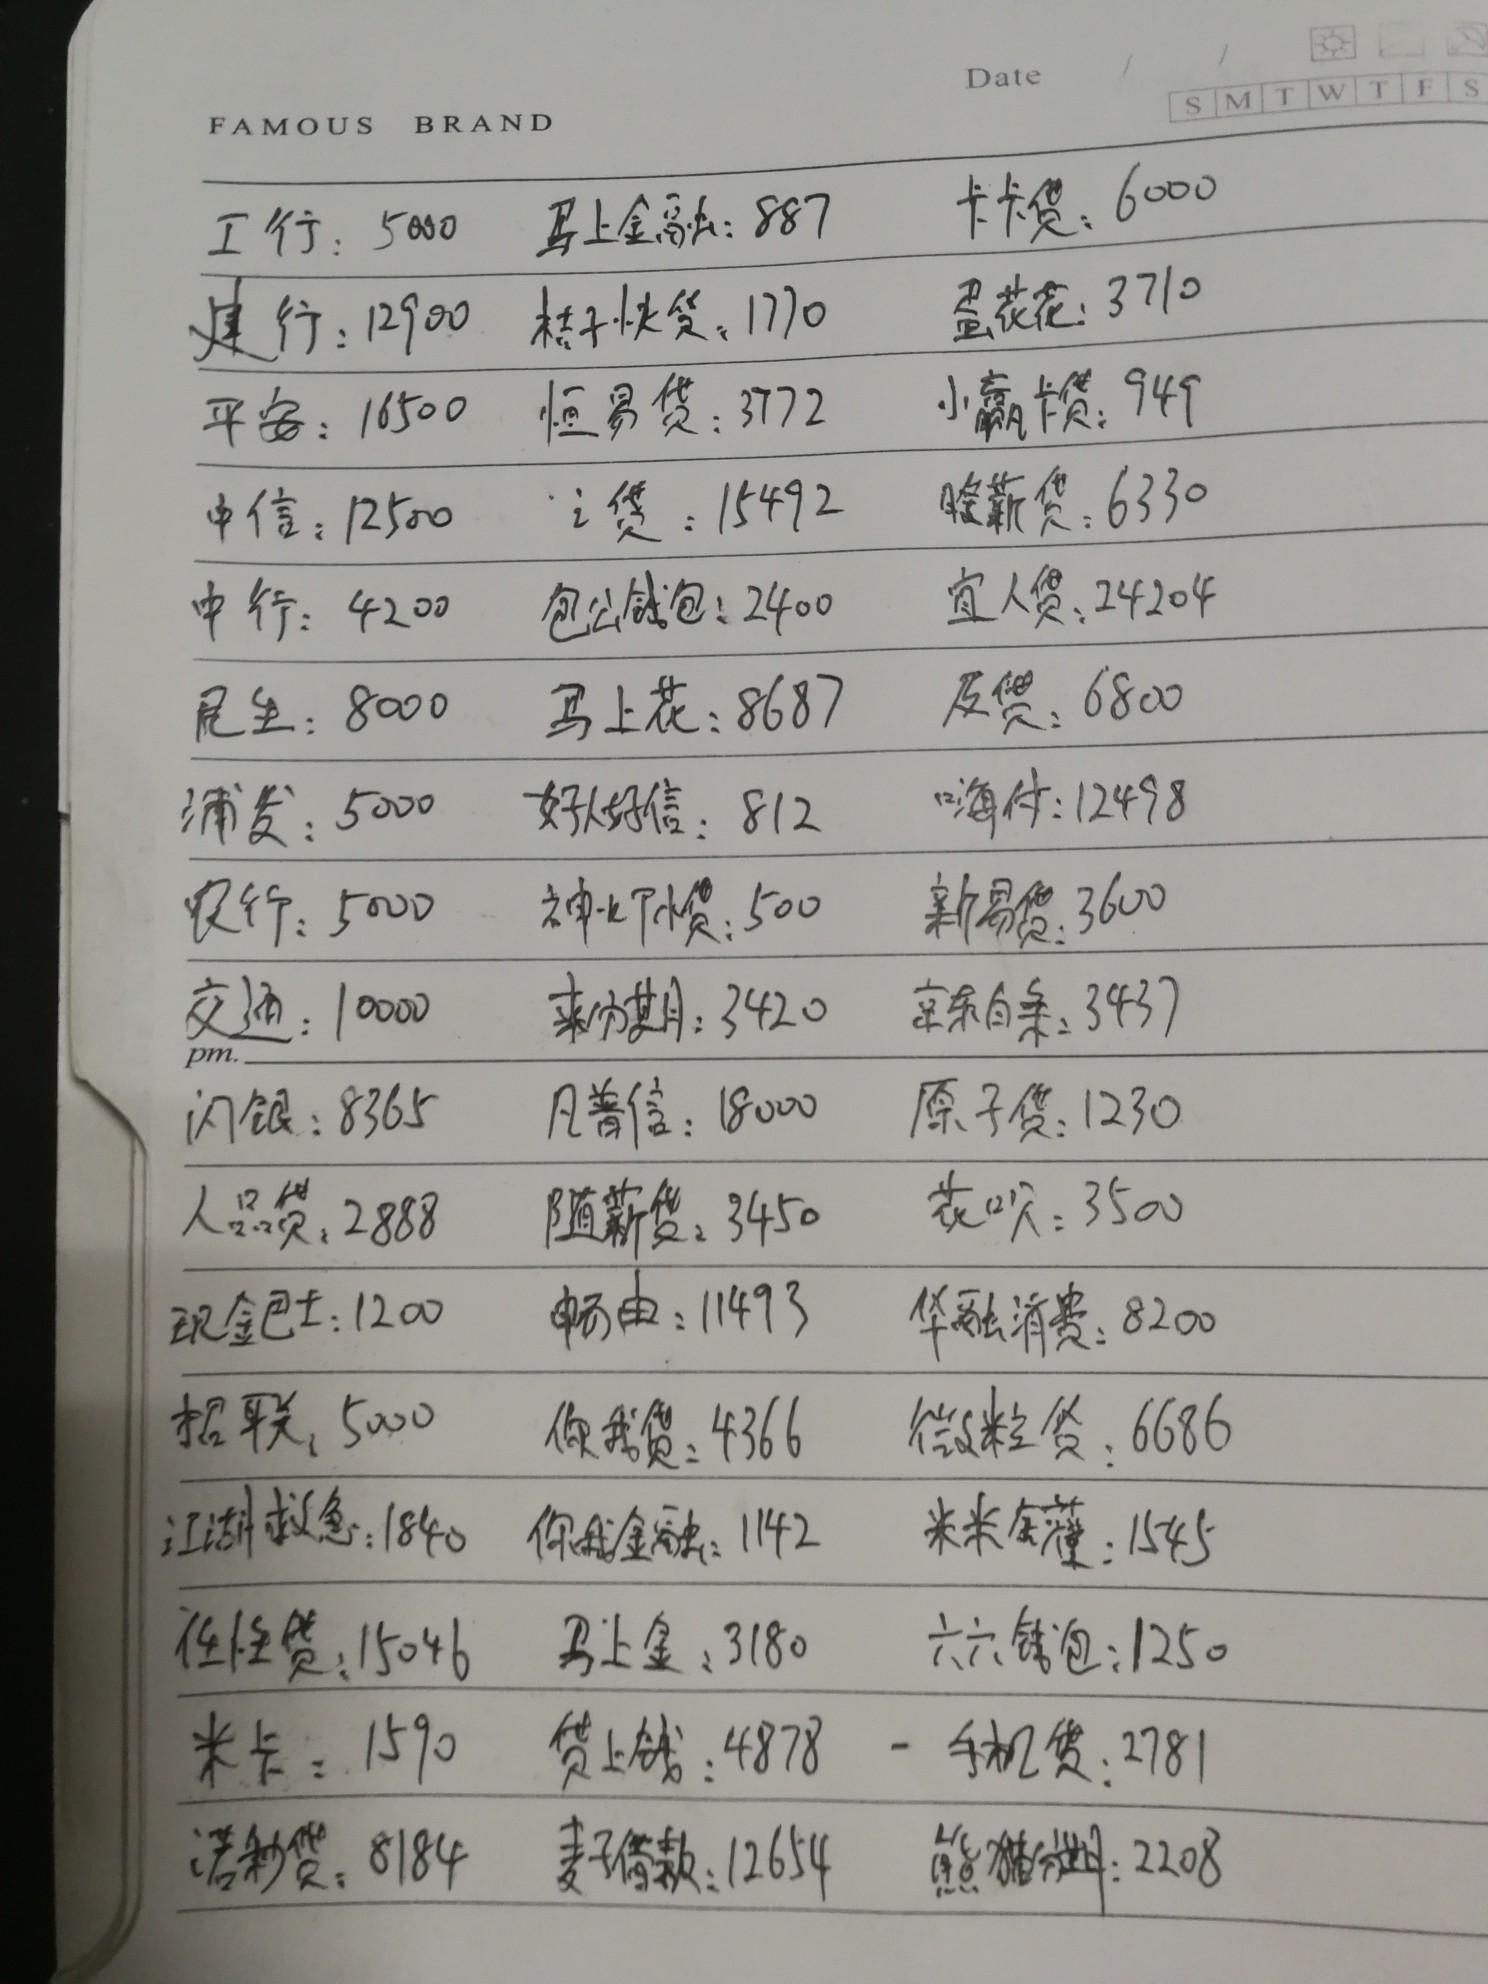 Date / /
S M T W T F S
FAMOUS BRAND
工行：5000 马上金融：887 卡卡贷：6000
建行：12900 桔子快贷：1770 蛋花花：3710
平安：16500 恒易贷：3772 小赢卡贷：949
中信：12500 贷：15492 薪贷：6330
中行：4200 包公钱包：2400 宜人贷：24204
民生：8000 马上花：8687 及贷：6800
浦发：5000 好人好信：812 嗨付：12498
农行：5000 500 新易贷：3600
交通：10000 来分期：3420 京东白条：3437
pm.
闪银：8365 凡普信：18000 原子贷：1230
人品贷：2888 随薪贷：3450 花呗：3500
现金巴士：1200 畅由：11493 华融消费：8200
招联：5000 你我贷：4366 微粒贷：6686
江湖救急：1840 你我金融：1142 米米罐：1545
任性贷：15046 马上金：3180 六六钱包：1250
米卡：1590 贷上钱：4878 - 手机贷：2781
诺秒贷：8184 麦子借款：12654 熊猫分期：2208